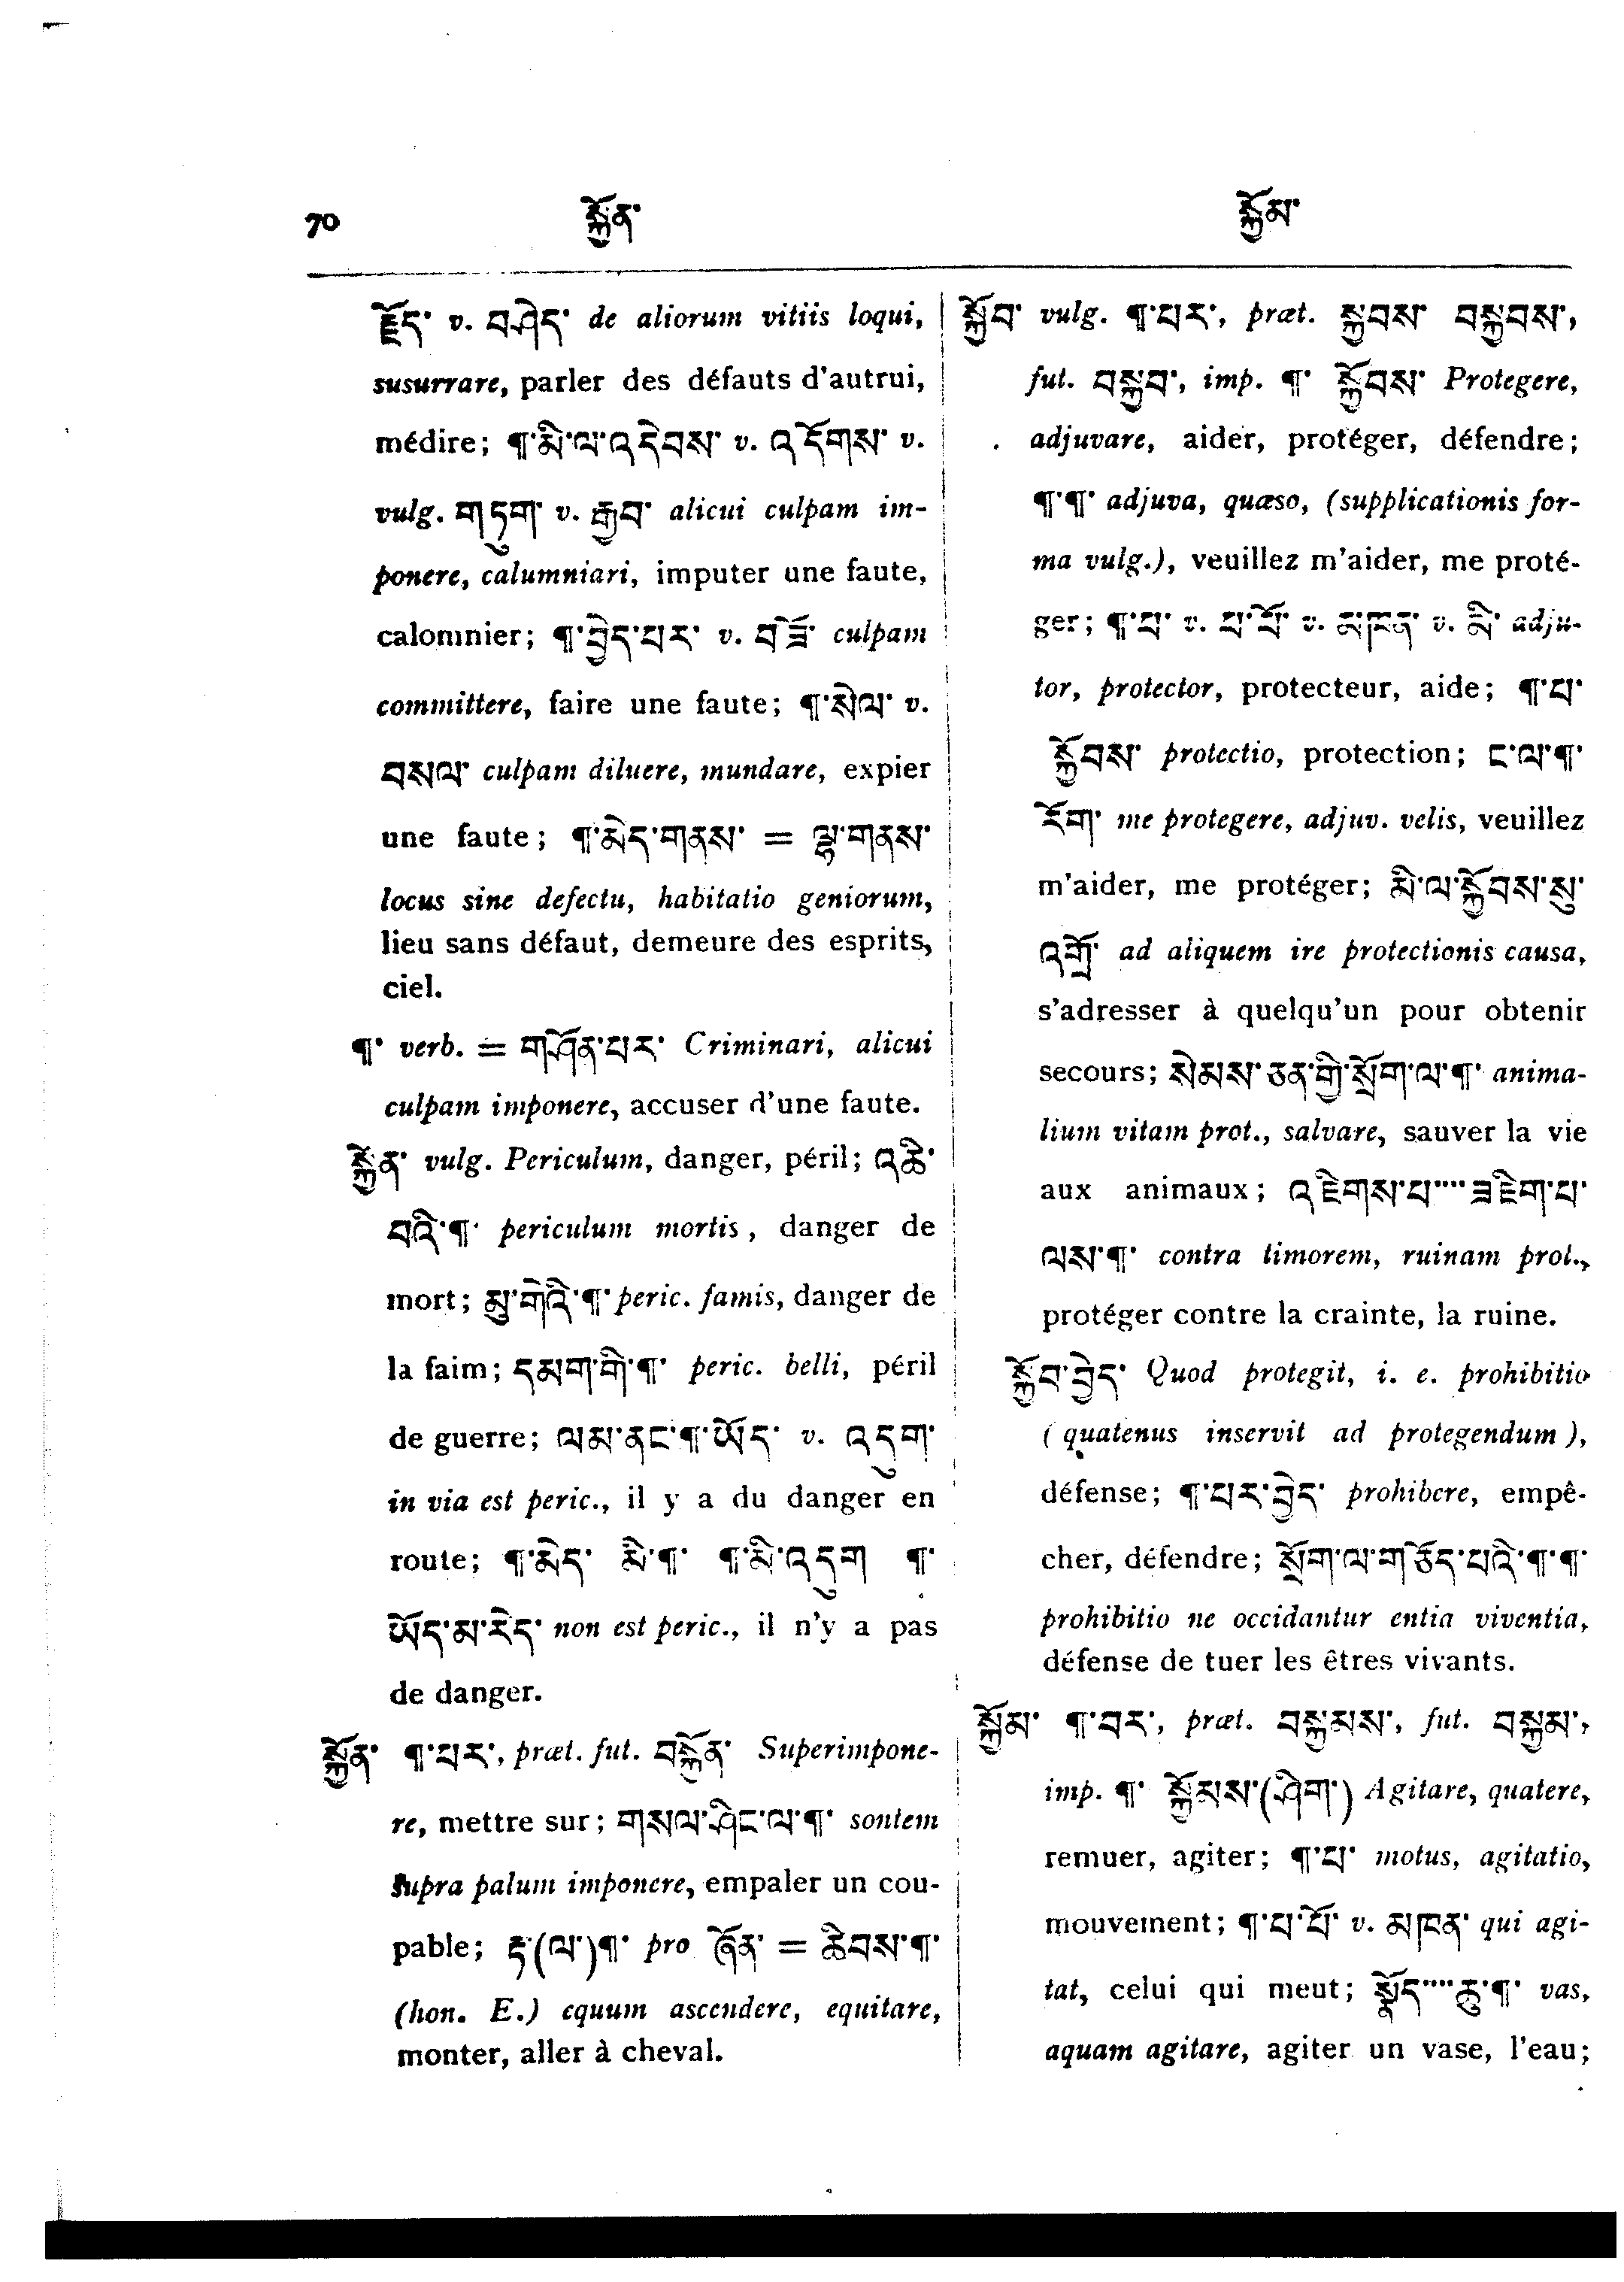 70 སྐྱོན་ སྐྱོམ་
རྗོད་ v. བཤེད་ de aliorum vitiis loqui,
susurrare, parler des défauts d'autrui,
médire; ¶་མི་ལ་འདེབས་ v. འདོགས་ v.
vulg. གཏུག་ v. རྒྱབ་ alicui culpam im-
ponere, calumniari, imputer une faute,
calomnier; ¶་བྱེད་པར་ v. བཟོ་ culpam
committere, faire une faute; ¶་སེལ་ v.
བསལ་ culpam diluere, mundare, expier
une faute; ¶་མེད་གནས་ = ལྷ་གནས་
locus sine defectu, habitatio geniorum,
lieu sans défaut, demeure des esprits,
ciel.
¶་ verb. = གཤོན་པར་ Criminari, alicui
culpam imponere, accuser d'une faute.
སྐྱེན་ vulg. Periculum, danger, péril; འཆི་
བའི་¶་ periculum mortis, danger de
mort; མུ་གེའི་¶་ peric. famis, danger de
la faim; དམག་གི་¶་ peric. belli, péril
de guerre; ལམ་ནང་¶་ཡོད་ v. འདུག་
in via est peric., il y a du danger en
route; ¶་མེད་ མི་¶་ ¶་མི་འདུག ¶་
ཡོད་མ་རེད་ non est peric., il n'y a pas
de danger.
སྐྱོན་ ¶་པར་, præt. fut. བསྐྱོན་ Superimpone-
re, mettre sur; གསལ་ཤིང་ལ་¶་ sontem
supra palum imponere, empaler un cou-
pable; རྟ་(ལ་)¶་ pro ཞོན་ = ཆིབས་¶་
(hon. E.) equum ascendere, equitare,
monter, aller à cheval.
སྐྱོབ་ vulg. ¶་པར་, præt. སྐྱབས་ བསྐྱབས་,
fut. བསྐྱབ་, imp. ¶་ སྐྱོབས་ Protegere,
adjuvare, aider, protéger, défendre;
¶་¶་ adjuva, quæso, (supplicationis for-
ma vulg.), veuillez m'aider, me proté-
ger; ¶་པ་ v. པ་པོ་ v. མཁན་ v. མི་ adju-
tor, protector, protecteur, aide; ¶་པ་
སྐྱོབས་ protectio, protection; ང་ལ་¶་
རོག་ me protegere, adjuv. velis, veuillez
m'aider, me protéger; མི་ལ་སྐྱོབས་སུ་
འགྲོ་ ad aliquem ire protectionis causa,
s'adresser à quelqu'un pour obtenir
secours; སེམས་ཅན་གྱི་སྲོག་ལ་¶་ anima-
lium vitam prot., salvare, sauver la vie
aux animaux; འཇིགས་པ་···· ཟ་ཇིག་པ་
ལས་¶་ contra timorem, ruinam prot.,
protéger contre la crainte, la ruine.
སྐྱོབ་བྱེད་ Quod protegit, i. e. prohibitio
(quatenus inservit ad protegendum),
défense; ¶་པར་བྱེད་ prohibere, empê-
cher, défendre; སྲོག་ལ་གཅོད་པའི་¶་¶་
prohibitio ne occidantur entia viventia,
défense de tuer les êtres vivants.
སྐྱོམ་ ¶་བར་, præt. བསྐྱམས་, fut. བསྐྱམ་,
imp. ¶་ སྐྱོམས་(ཤིག་) Agitare, quatere,
remuer, agiter; ¶་པ་ motus, agitatio,
mouvement; ¶་པ་པོ་ v. མཁན་ qui agi-
tat, celui qui meut; སྣོད་···· ཆུ་¶་ vas,
aquam agitare, agiter un vase, l'eau;